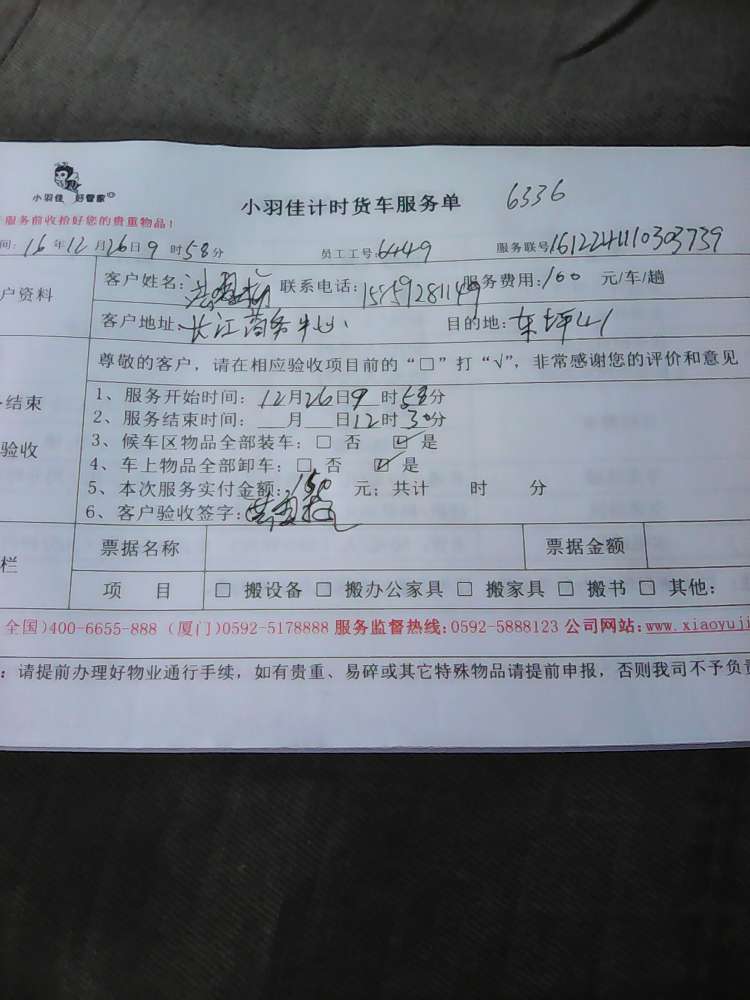 小羽佳 好管家
小羽佳计时货车服务单 6336
服务前收拾好您的贵重物品！
间：16年12月26日9时58分 员工工号：6449 服务联号
户资料
客户姓名： 联系电话： 服务费用：160 元/车/趟
客户地址：长江商务中心 目的地：东坪山
尊敬的客户，请在相应验收项目前的“□”打“√”，非常感谢您的评价和意见
结束
验收
1、服务开始时间：12月26日9时58分
2、服务结束时间：__月__日12时30分
3、候车区物品全部装车：□ 否 ☑ 是
4、车上物品全部卸车：□ 否 ☑ 是
5、本次服务实付金额：150 元；共计 时 分
6、客户验收签字：
栏
票据名称 票据金额
项 目 □ 搬设备 □ 搬办公家具 □ 搬家具 □ 搬书 □ 其他：
全国)400-6655-888 (厦门)0592-5178888 服务监督热线：0592-5888123 公司网站：www.xiaoyuji
：请提前办理好物业通行手续，如有贵重、易碎或其它特殊物品请提前申报，否则我司不予负责